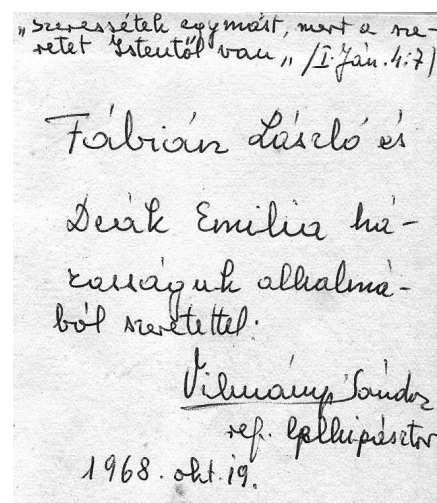 „Szeressétek egymást, mert a sze-
retet Istentől van„ /I. Ján. 4:7/
Fábián László és
Deák Emilia há-
zasságuk alkalmá-
ból szeretettel.
Vilmányi Sándor
ref. lelkipásztor
1968. okt. 19.